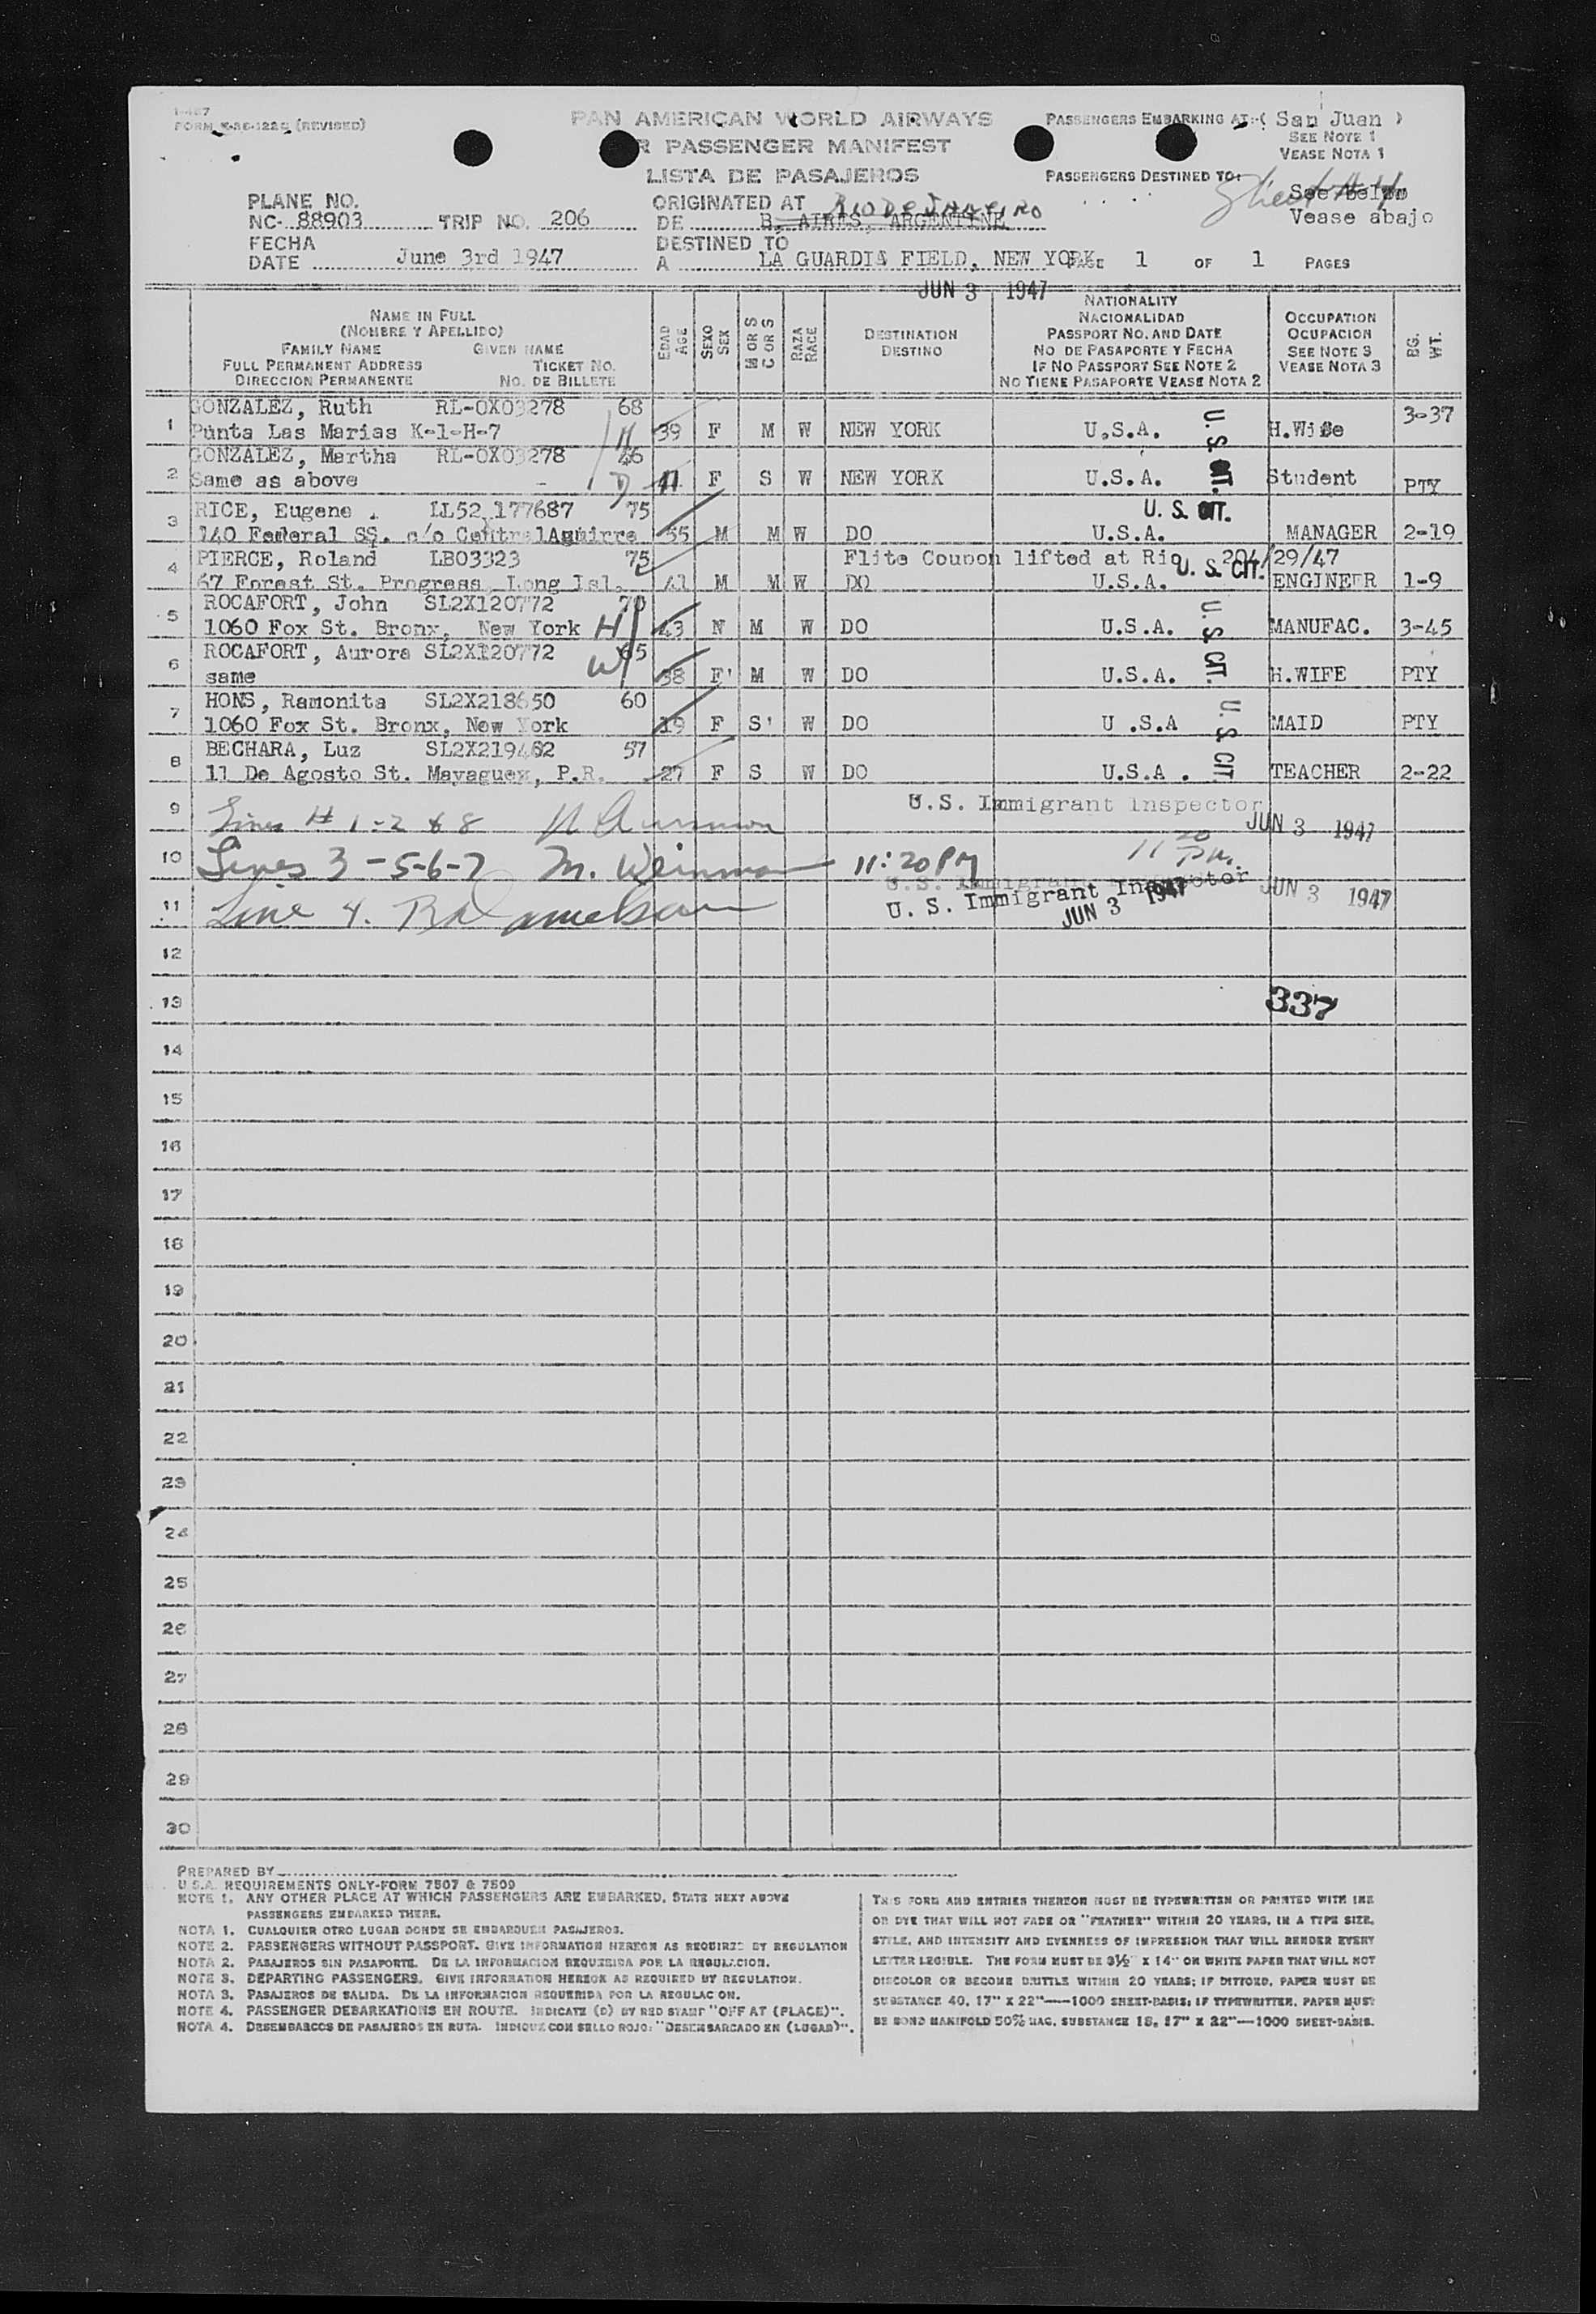 1-467
FORM (REVISED)
PAN AMERICAN WORLD AIRWAYS
R PASSENGER MANIFEST
LISTA DE PASAJEROS
PASSENGERS EMBARKING AT:-( San Juan )
SEE NOTE 1
VEASE NOTA 1
PASSENGERS DESTINED TO:
See Below
Vease abajo
PLANE NO.
NC- 88903 TRIP NO. 206
ORIGINATED AT Rio De Janeiro
DE B. AIRES, ARGENTINE
FECHA
DATE June 3rd 1947
DESTINED TO
A LA GUARDIA FIELD, NEW YORK PAGE 1 OF 1 PAGES
JUN 3 1947
NAME IN FULL
(NOMBRE Y APELLIDO)
FAMILY NAME GIVEN NAME
FULL PERMANENT ADDRESS TICKET NO.
DIRECCION PERMANENTE NO. DE BILLETE
EDAD AGE
SEXO SEX
M OR S C OR S
RAZA RACE
DESTINATION
DESTINO
NATIONALITY
NACIONALIDAD
PASSPORT NO. AND DATE
NO DE PASAPORTE Y FECHA
IF NO PASSPORT SEE NOTE 2
NO TIENE PASAPORTE VEASE NOTA 2
OCCUPATION
OCUPACION
SEE NOTE 3
VEASE NOTA 3
BG. WT.
GONZALEZ, Ruth RL-OX03278 68
1 Punta Las Marias K-1-H-7 39 F M W NEW YORK U.S.A. U.S. CIT. H.Wife 3-37
GONZALEZ, Martha RL-OX03278
2 Same as above - D 11 F S W NEW YORK U.S.A. Student PTY
RICE, Eugene LL52 177687 75 U. S. CIT.
3 140 Federal SS. c/o CentralAguirre 55 M M W DO U.S.A. MANAGER 2-19
PIERCE, Roland LB03323 75 Flite Coupon lifted at Rio 204/29/47
4 67 Forest St. Progress, Long Isl. 41 M M W DO U.S.A. U. S. CIT. ENGINEER 1-9
ROCAFORT, John SL2X120772 70
5 1060 Fox St. Bronx, New York H 43 N M W DO U.S.A. U. S. CIT. MANUFAC. 3-45
ROCAFORT, Aurora SL2X120772 65
6 same W 38 F M W DO U.S.A. H.WIFE PTY
HONS, Ramonita SL2X218650 60
7 1060 Fox St. Bronx, New York 19 F S W DO U .S.A U. S. CIT. MAID PTY
BECHARA, Luz SL2X219482 57
8 11 De Agosto St. Mayaguez, P.R. 27 F S W DO U.S.A . TEACHER 2-22
9 Lines # 1-2 & 8 U.S. Immigrant Inspector
JUN 3 1947
10 Lines 3-5-6-7 M. Weinman 11:20 PM 11 20 P.M.
U.S. Immigrant Inspector JUN 3 1947
11 Line 4. U. S. Immigrant Inspector
JUN 3 1947
12
13 337
14
15
16
17
18
19
20
21
22
23
24
25
26
27
28
29
30
PREPARED BY
U.S.A. REQUIREMENTS ONLY-FORM 7507 & 7509
NOTE 1. ANY OTHER PLACE AT WHICH PASSENGERS ARE EMBARKED, STATE NEXT ABOVE
PASSENGERS EMBARKED THERE.
NOTA 1. CUALQUIER OTRO LUGAR DONDE SE EMBARQUEN PASAJEROS.
NOTE 2. PASSENGERS WITHOUT PASSPORT. GIVE INFORMATION HEREON AS REQUIRED BY REGULATION
NOTA 2. PASAJEROS SIN PASAPORTE. DE LA INFORMACION REQUERIDA POR LA REGULACION.
NOTE 3. DEPARTING PASSENGERS. GIVE INFORMATION HEREON AS REQUIRED BY REGULATION.
NOTA 3. PASAJEROS DE SALIDA. DE LA INFORMACION REQUERIDA POR LA REGULAC ON.
NOTE 4. PASSENGER DEBARKATIONS EN ROUTE. INDICATE (D) BY RED STAMP "OFF AT (PLACE)".
NOTA 4. DESEMBARCOS DE PASAJEROS EN RUTA. INDIQUE CON SELLO ROJO: "DESEMBARCADO EN (LUGAR)".
THIS FORM AND ENTRIES THEREON MUST BE TYPEWRITTEN OR PRINTED WITH INK
OR DYE THAT WILL NOT FADE OR "FEATHER" WITHIN 20 YEARS, IN A TYPE SIZE,
STYLE, AND INTENSITY AND EVENNESS OF IMPRESSION THAT WILL RENDER EVERY
LETTER LEGIBLE. THE FORM MUST BE 8½" X 14" ON WHITE PAPER THAT WILL NOT
DISCOLOR OR BECOME BRITTLE WITHIN 20 YEARS; IF DITTOED, PAPER MUST BE
SUBSTANCE 40, 17" X 22"—1000 SHEET-BASIS; IF TYPEWRITTEN, PAPER MUST
BE BOND MANIFOLD 50% RAG, SUBSTANCE 18, 17" X 22"—1000 SHEET-BASIS.